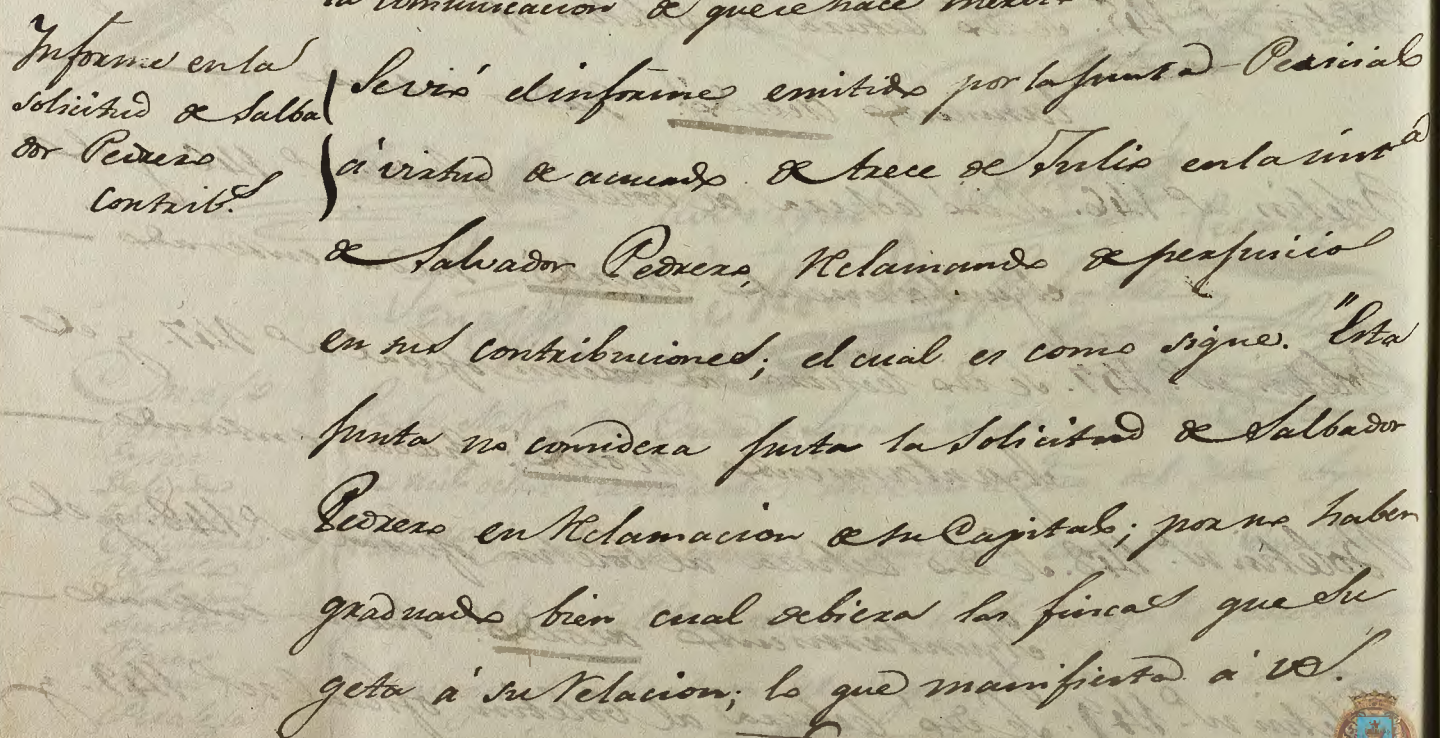 la comunicacion de que se hace
Informe en la
solicitud de Salba
dor Pedrero
contrib.s
Se vió el informe emitido por la Junta Pericial
á virtud de acuerdo de trece de Julio en la inst.a
de Salvador Pedrero, reclamando de perjuicio
en sus contribuciones; el cual es como sigue. "Esta
Junta no considera justa la Solicitud de Salbador
Pedrero en reclamacion de su Capital; por no haber
graduado bien cual debiera las fincas que su
geta á su relacion; lo que manifiesta á VS.